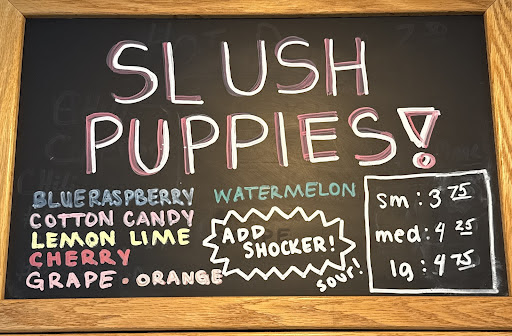 SLUSH
PUPPIES!
BLUERASPBERRY
COTTON CANDY
LEMON LIME
CHERRY
GRAPE • ORANGE
WATERMELON
ADD
SHOCKER!
sour!
sm: 3 75
med: 4 25
lg: 4 75